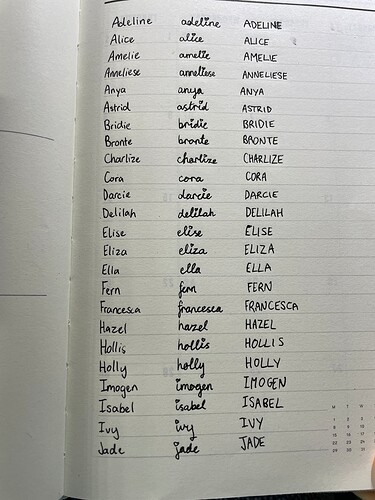 Adeline adeline ADELINE
Alice alice ALICE
Amelie amelie AMELIE
Anneliese anneliese ANNELIESE
Anya anya ANYA
Astrid astrid ASTRID
Bridie bridie BRIDIE
Bronte bronte BRONTE
Charlize charlize CHARLIZE
Cora cora CORA
Darcie darcie DARCIE
Delilah delilah DELILAH
Elise elise ELISE
Eliza eliza ELIZA
Ella ella ELLA
Fern fern FERN
Francesca francesca FRANCESCA
Hazel hazel HAZEL
Hollis hollis HOLLIS
Holly holly HOLLY
Imogen imogen IMOGEN
Isabel isabel ISABEL
Ivy ivy IVY
Jade jade JADE
M T W
1 2 3
8 9 10
15 16 17
22 23 24
29 30 31